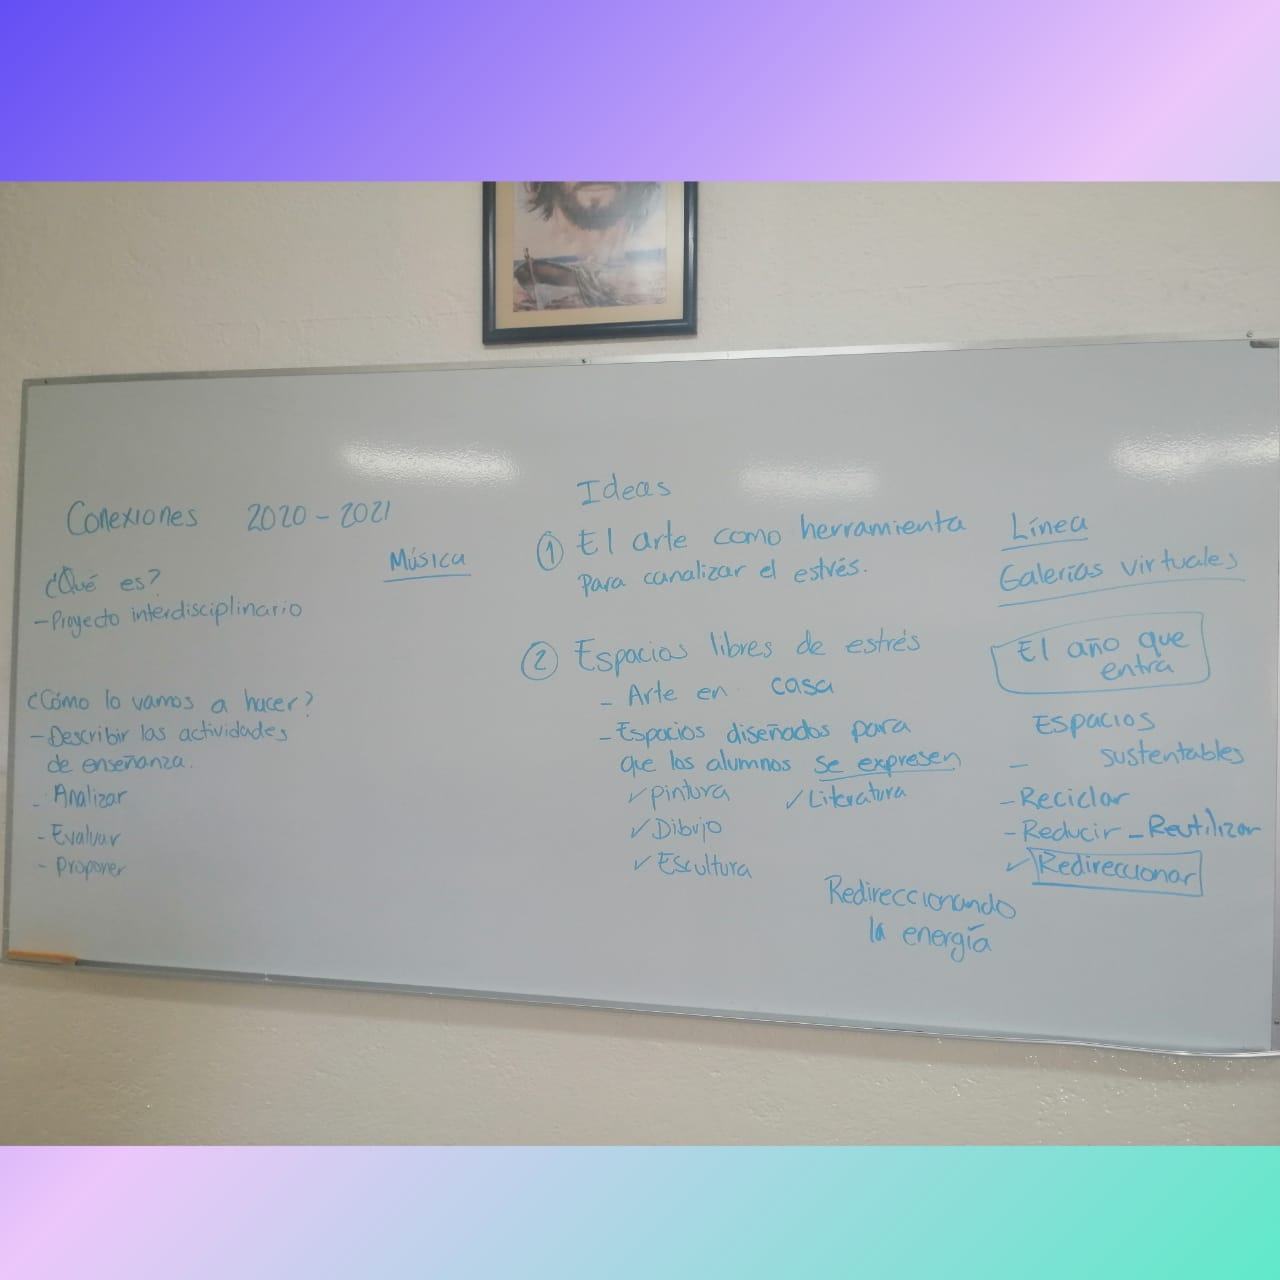 Conexiones 2020 - 2021
Música
¿Qué es?
- Proyecto interdisciplinario
¿Cómo lo vamos a hacer?
- Describir las actividades
de enseñanza.
- Analizar
- Evaluar
- Proponer
Ideas
① El arte como herramienta
para canalizar el estrés.
② Espacios libres de estrés
- Arte en casa
- Espacios diseñados para
que los alumnos se expresen
✓ pintura ✓ Literatura
✓ Dibujo
✓ Escultura
Redireccionando
la energía
Línea
Galerías virtuales
El año que
entra
Espacios
- sustentables
- Reciclar
- Reducir - Reutilizar
✓ Redireccionar